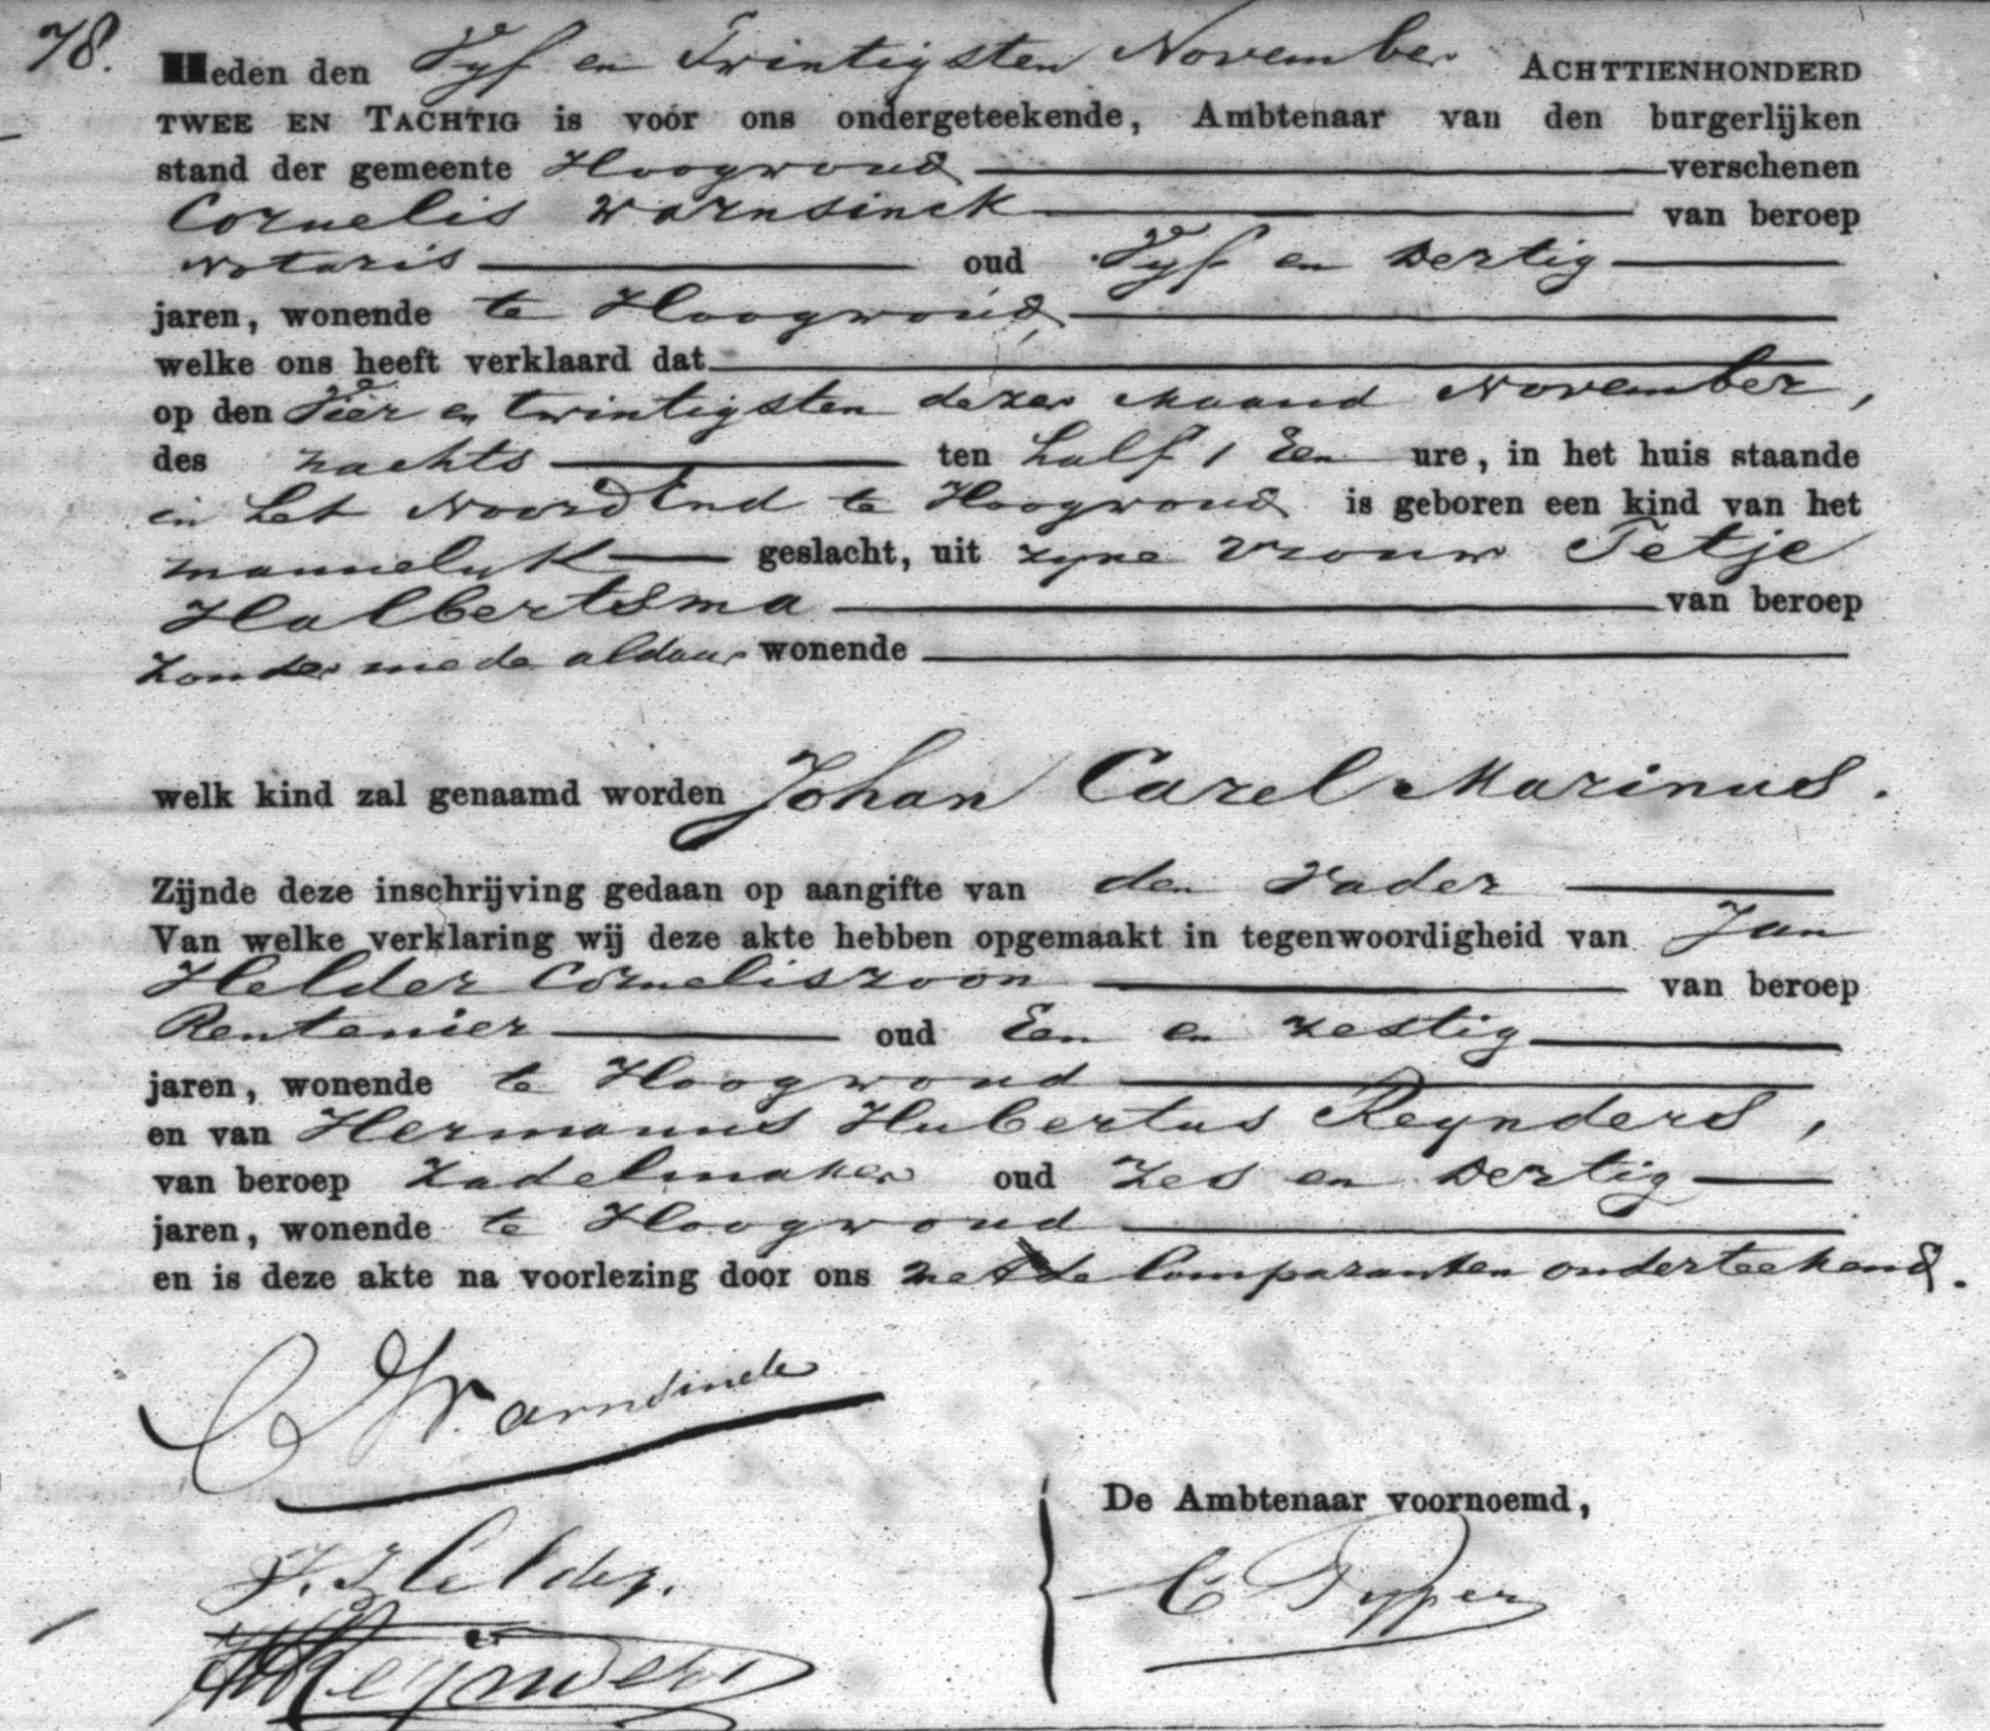 78.
Heden den Vyf en Twintigsten November ACHTTIENHONDERD
TWEE EN TACHTIG is voor ons ondergeteekende, Ambtenaar van den burgerlijken
stand der gemeente Hoogwoud verschenen
Cornelis Warnsinck van beroep
Notaris oud Vyf en Dertig
jaren, wonende te Hoogwoud
welke ons heeft verklaard dat
op den Vier en twintigsten dezer Maand November,
des nachts ten half 1 Een ure, in het huis staande
in het Noord End te Hoogwoud is geboren een kind van het
mannelyk geslacht, uit zyne Vrouw Tetje
Halbertsma van beroep
zonder mede aldaar wonende
welk kind zal genaamd worden Johan Carel Marinus.
Zijnde deze inschrijving gedaan op aangifte van den Vader
Van welke verklaring wij deze akte hebben opgemaakt in tegenwoordigheid van Jan
Helder Corneliszoon van beroep
Rentenier oud Een en zestig
jaren, wonende te Hoogwoud
en van Hermanus Hubertus Reynders,
van beroep Zadelmaker oud Zes en Dertig
jaren, wonende te Hoogwoud
en is deze akte na voorlezing door ons met de Comparanten onderteekend.
C Warnsinck
De Ambtenaar voornoemd,
J. Helder.
C Pyper
HHReijnders